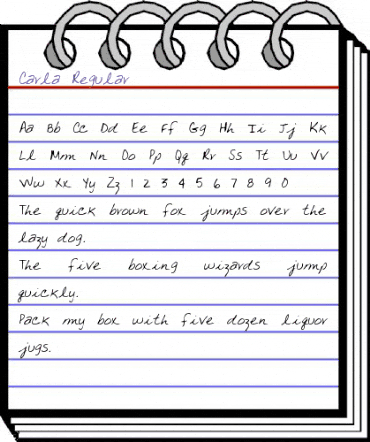 Carla Regular
Aa Bb Cc Dd Ee Ff Gg Hh Ii Jj Kk
Ll Mm Nn Oo Pp Qq Rr Ss Tt Uu Vv
Ww Xx Yy Zz 1 2 3 4 5 6 7 8 9 0
The quick brown fox jumps over the
lazy dog.
The five boxing wizards jump
quickly.
Pack my box with five dozen liquor
jugs.